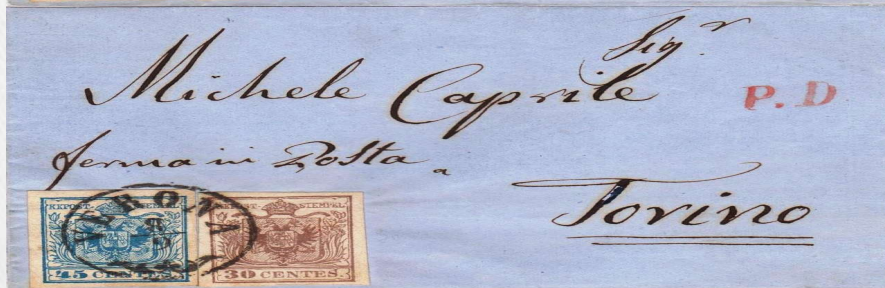 Sigr
Michele Caprile
P. D
ferma in Posta
a
Torino
VERONA
STEMPEL
45 CENTES.
30 CENTES.